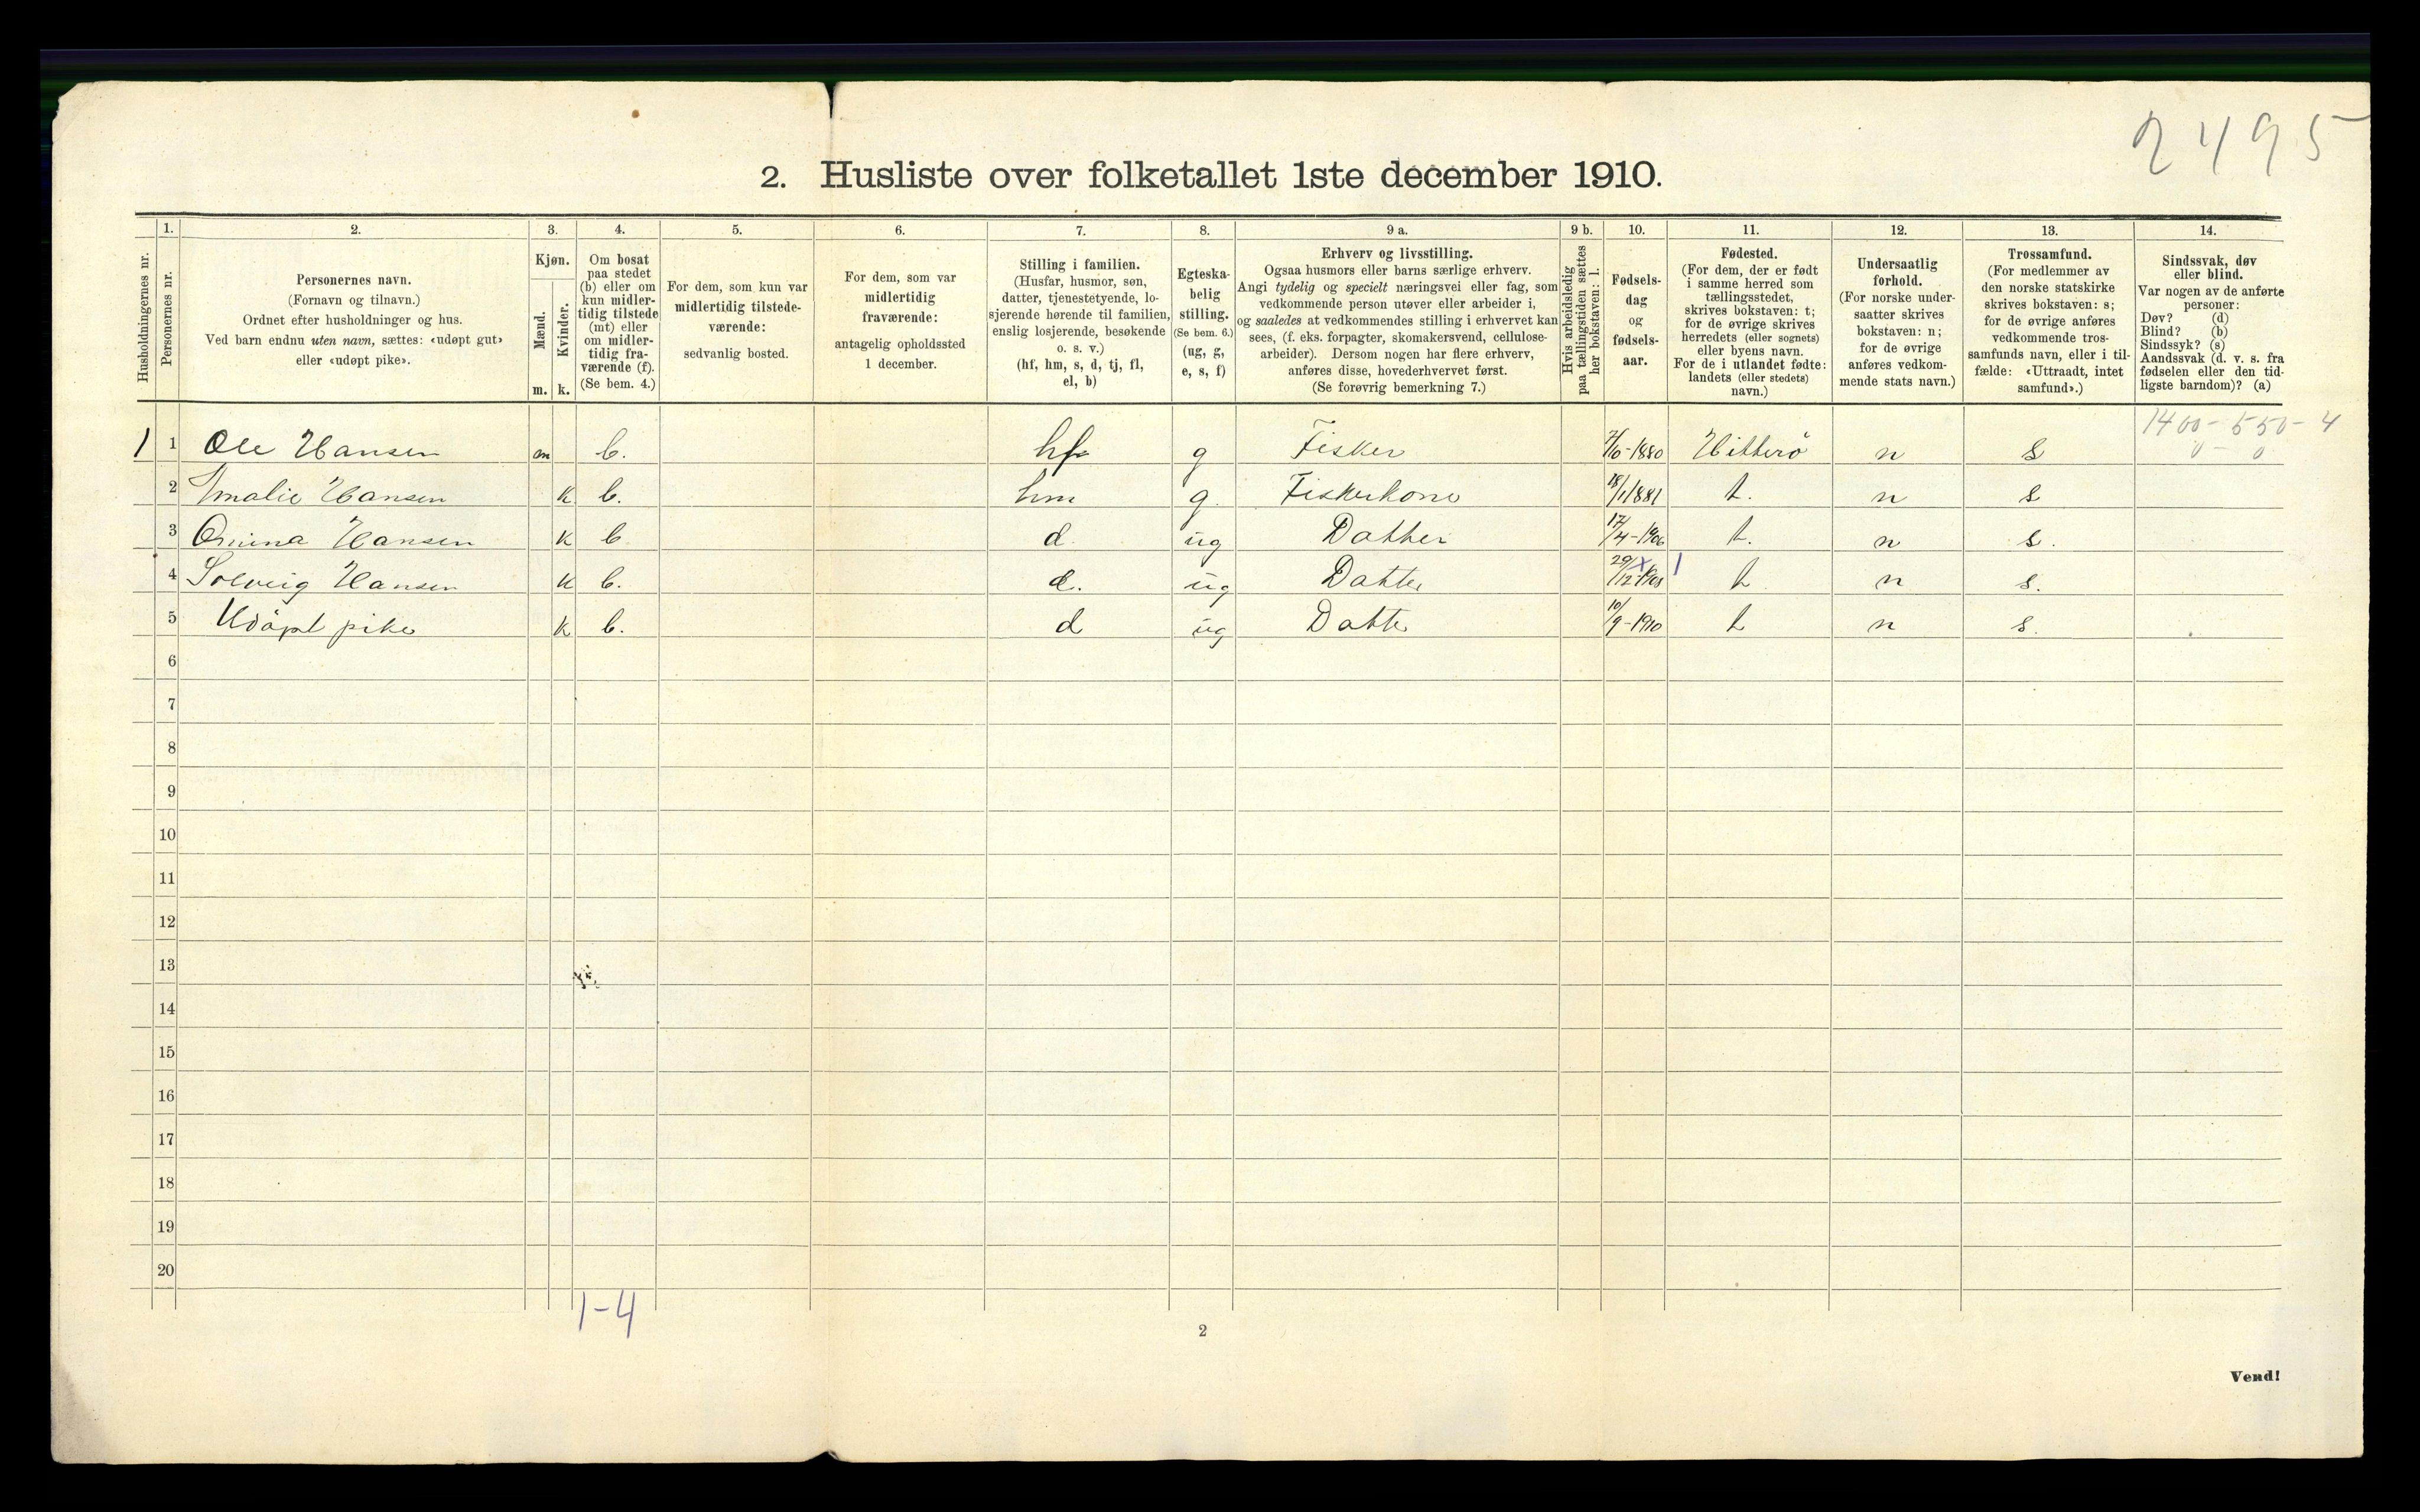 2495
2. Husliste over folketallet 1ste december 1910.
Husholdningernes nr.
1. Personernes nr.
2. Personernes navn.
(Fornavn og tilnavn.)
Ordnet efter husholdninger og hus.
Ved barn endnu uten navn, sættes: «udøpt gut»
eller «udøpt pike».
3. Kjøn.
Mænd. m.
Kvinder. k.
4. Om bosat
paa stedet
(b) eller om
kun midler-
tidig tilstede
(mt) eller
om midler-
tidig fra-
værende (f).
(Se bem. 4.)
5. For dem, som kun var
midlertidig tilstede-
værende:
sedvanlig bosted.
6. For dem, som var
midlertidig
fraværende:
antagelig opholdssted
1 december.
7. Stilling i familien.
(Husfar, husmor, søn,
datter, tjenestetyende, lo-
sjerende hørende til familien,
enslig losjerende, besøkende
o. s. v.)
(hf, hm, s, d, tj, fl,
el, b)
8. Egteska-
belig
stilling.
(Se bem. 6.)
(ug, g,
e, s, f)
9 a. Erhverv og livsstilling.
Ogsaa husmors eller barns særlige erhverv.
Angi tydelig og specielt næringsvei eller fag, som
vedkommende person utøver eller arbeider i,
og saaledes at vedkommendes stilling i erhvervet kan
sees, (f. eks. forpagter, skomakersvend, cellulose-
arbeider). Dersom nogen har flere erhverv,
anføres disse, hovederhvervet først.
(Se forøvrig bemerkning 7.)
9 b. Hvis arbeidsledig
paa tællingstiden sættes
her bokstaven: l.
10. Fødsels-
dag
og
fødsels-
aar.
11. Fødested.
(For dem, der er født
i samme herred som
tællingsstedet,
skrives bokstaven: t;
for de øvrige skrives
herredets (eller sognets)
eller byens navn.
For de i utlandet fødte:
landets (eller stedets)
navn.)
12. Undersaatlig
forhold.
(For norske under-
saatter skrives
bokstaven: n;
for de øvrige
anføres vedkom-
mende stats navn.)
13. Trossamfund.
(For medlemmer av
den norske statskirke
skrives bokstaven: s;
for de øvrige anføres
vedkommende tros-
samfunds navn, eller i til-
fælde: «Uttraadt, intet
samfund».)
14. Sindssvak, døv
eller blind.
Var nogen av de anførte
personer:
Døv? (d)
Blind? (b)
Sindssyk? (s)
Aandssvak (d. v. s. fra
fødselen eller den tid-
ligste barndom)? (a)
1400-550-4
0 - 0
1 1 Ole Hansen m b. hf g Fisker -1880 Hitterö n s
2 Amalie Hansen k b. hm g. Fiskerkone 18/1 1881 t. n s
3 Hansen k b d. ug Datter 17/4-1906 t. n s.
4 Solveig Hansen k b. d. ug Datter 29/12 1908 t n s.
5 Udöpt pike k b. d ug Datter 10/9-1910 t n s.
6
7
8
9
10
11
12
13
14
15
16
17
18
19
20
1-4
2
Vend!